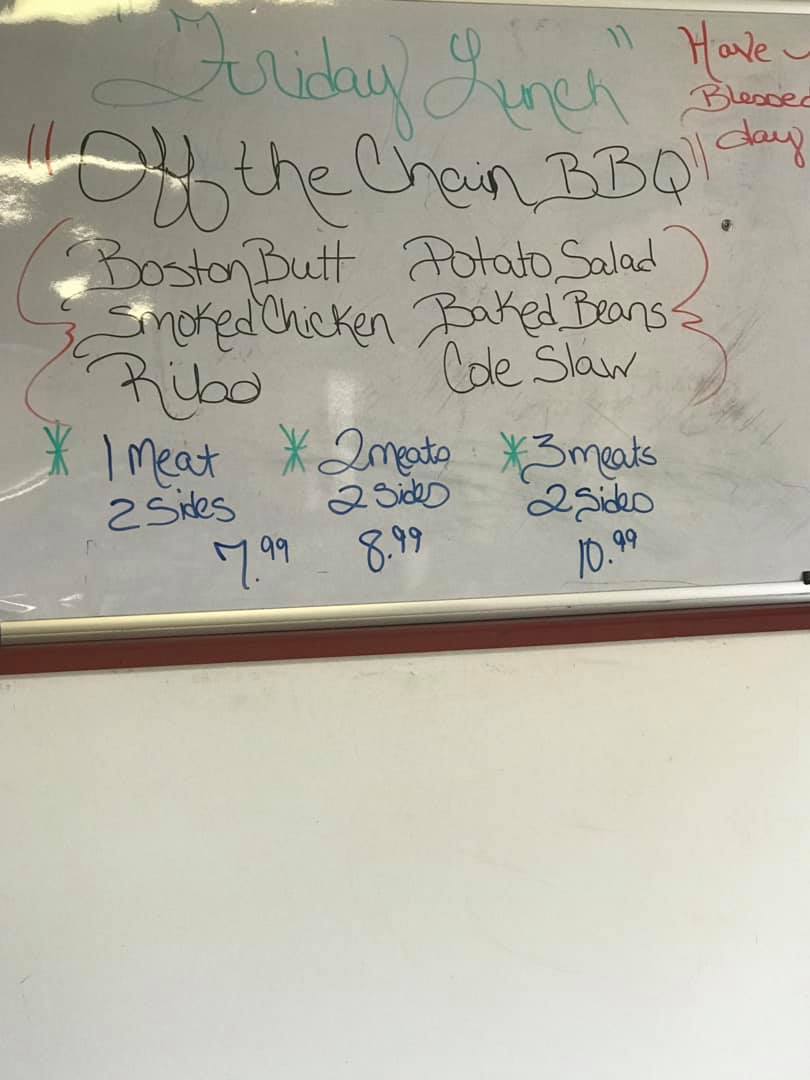 "Friday Lunch"
Have
Blessed
day
"Off the Chain BBQ"
Boston Butt Potato Salad
Smoked Chicken Baked Beans
Ribs Cole Slaw
* 1 Meat * 2 meats * 3 meats
2 Sides 2 Sides 2 Sides
7.99 8.99 10.99